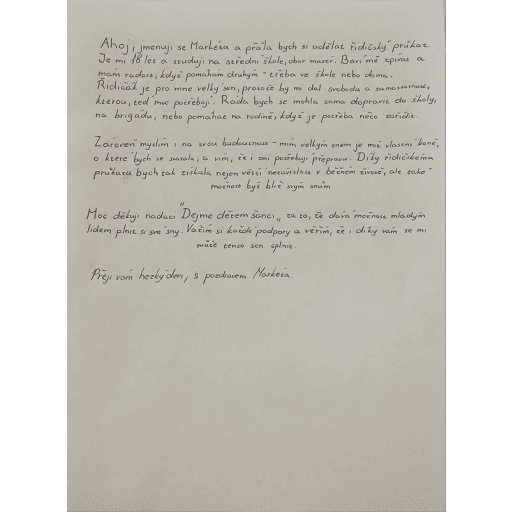 Ahoj, jmenuji se Markéta a přála bych si udělat řidičský průkaz.
Je mi 18 let a studuji na střední škole, obor masér. Baví mě zpívat a
mám radost, když pomáhám druhým - třeba ve škole nebo doma.
Řidičák je pro mne velký sen, protože by mi dal svobodu a samostatnost,
kterou teď moc potřebuji. Ráda bych se mohla sama dopravit do školy,
na brigádu, nebo pomáhat na rodině, když je potřeba něco zařídit.
Zároveň myslím i na svou budoucnost - mím velkým snem je mít vlastní koně,
o které bych se starala, a vím, že i oni potřebují přepravu. Díky řidičskému
průkazu bych tak získala nejen větší nezávislost v běžném životě, ale také
možnost být blíž svým snům.
Moc děkuji nadaci "Dejme dětem šanci" za to, že dává možnost mladým
lidem plnit si své sny. Vážím si každé podpory a věřím, že i díky vám se mi
může tento sen splnit.
Přeji vám hezký den, s pozdravem Markéta.